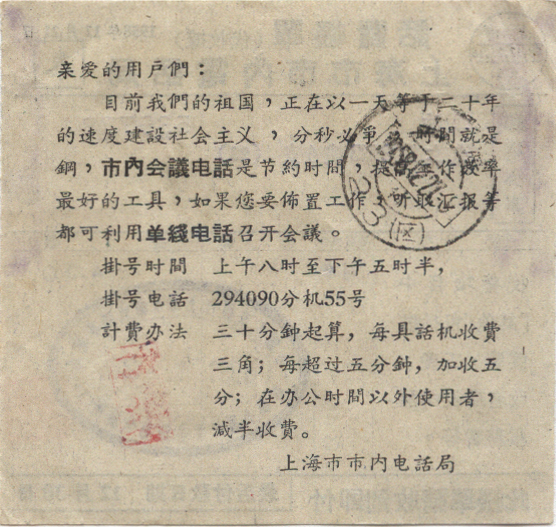 亲爱的用戶們：
目前我們的祖国，正在以一天等于二十年
的速度建設社会主义，分秒必爭，时間就是
鋼，市內会議电話是节約时間，提高工作效率
最好的工具，如果您要佈置工作，听取汇报等
都可利用单綫电話召开会議。
掛号时間 上午八时至下午五时半，
掛号电話 294090分机55号
計費办法 三十分鈡起算，每具話机收費
三角；每超过五分鈡，加收五
分；在办公时間以外使用者，
減半收費。
上海市市内电話局
23(区)